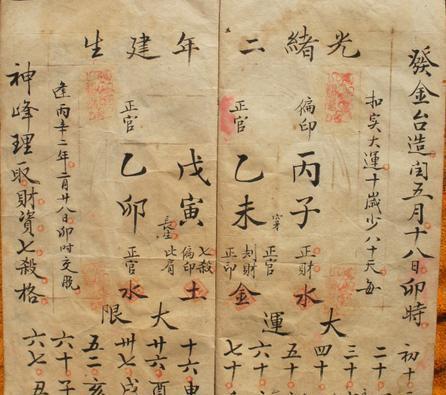 光緒二年建生
發金台造閏五月十八日卯時
扣实大运十歲少八十天每
偏印
丙子
正財
水
正官
乙未
正官
刦財
正印
金
戊寅
長生
七殺
偏印
比肩
土
正官
乙卯
正官
水
大運
初十
二十
三十
四十
五十
六十
七十
大限
十六申
廿六酉
卅七戌
五二亥
六十子
六七丑
逢丙辛二年二月廿八日卯时交脱
神峰理取財資七殺格